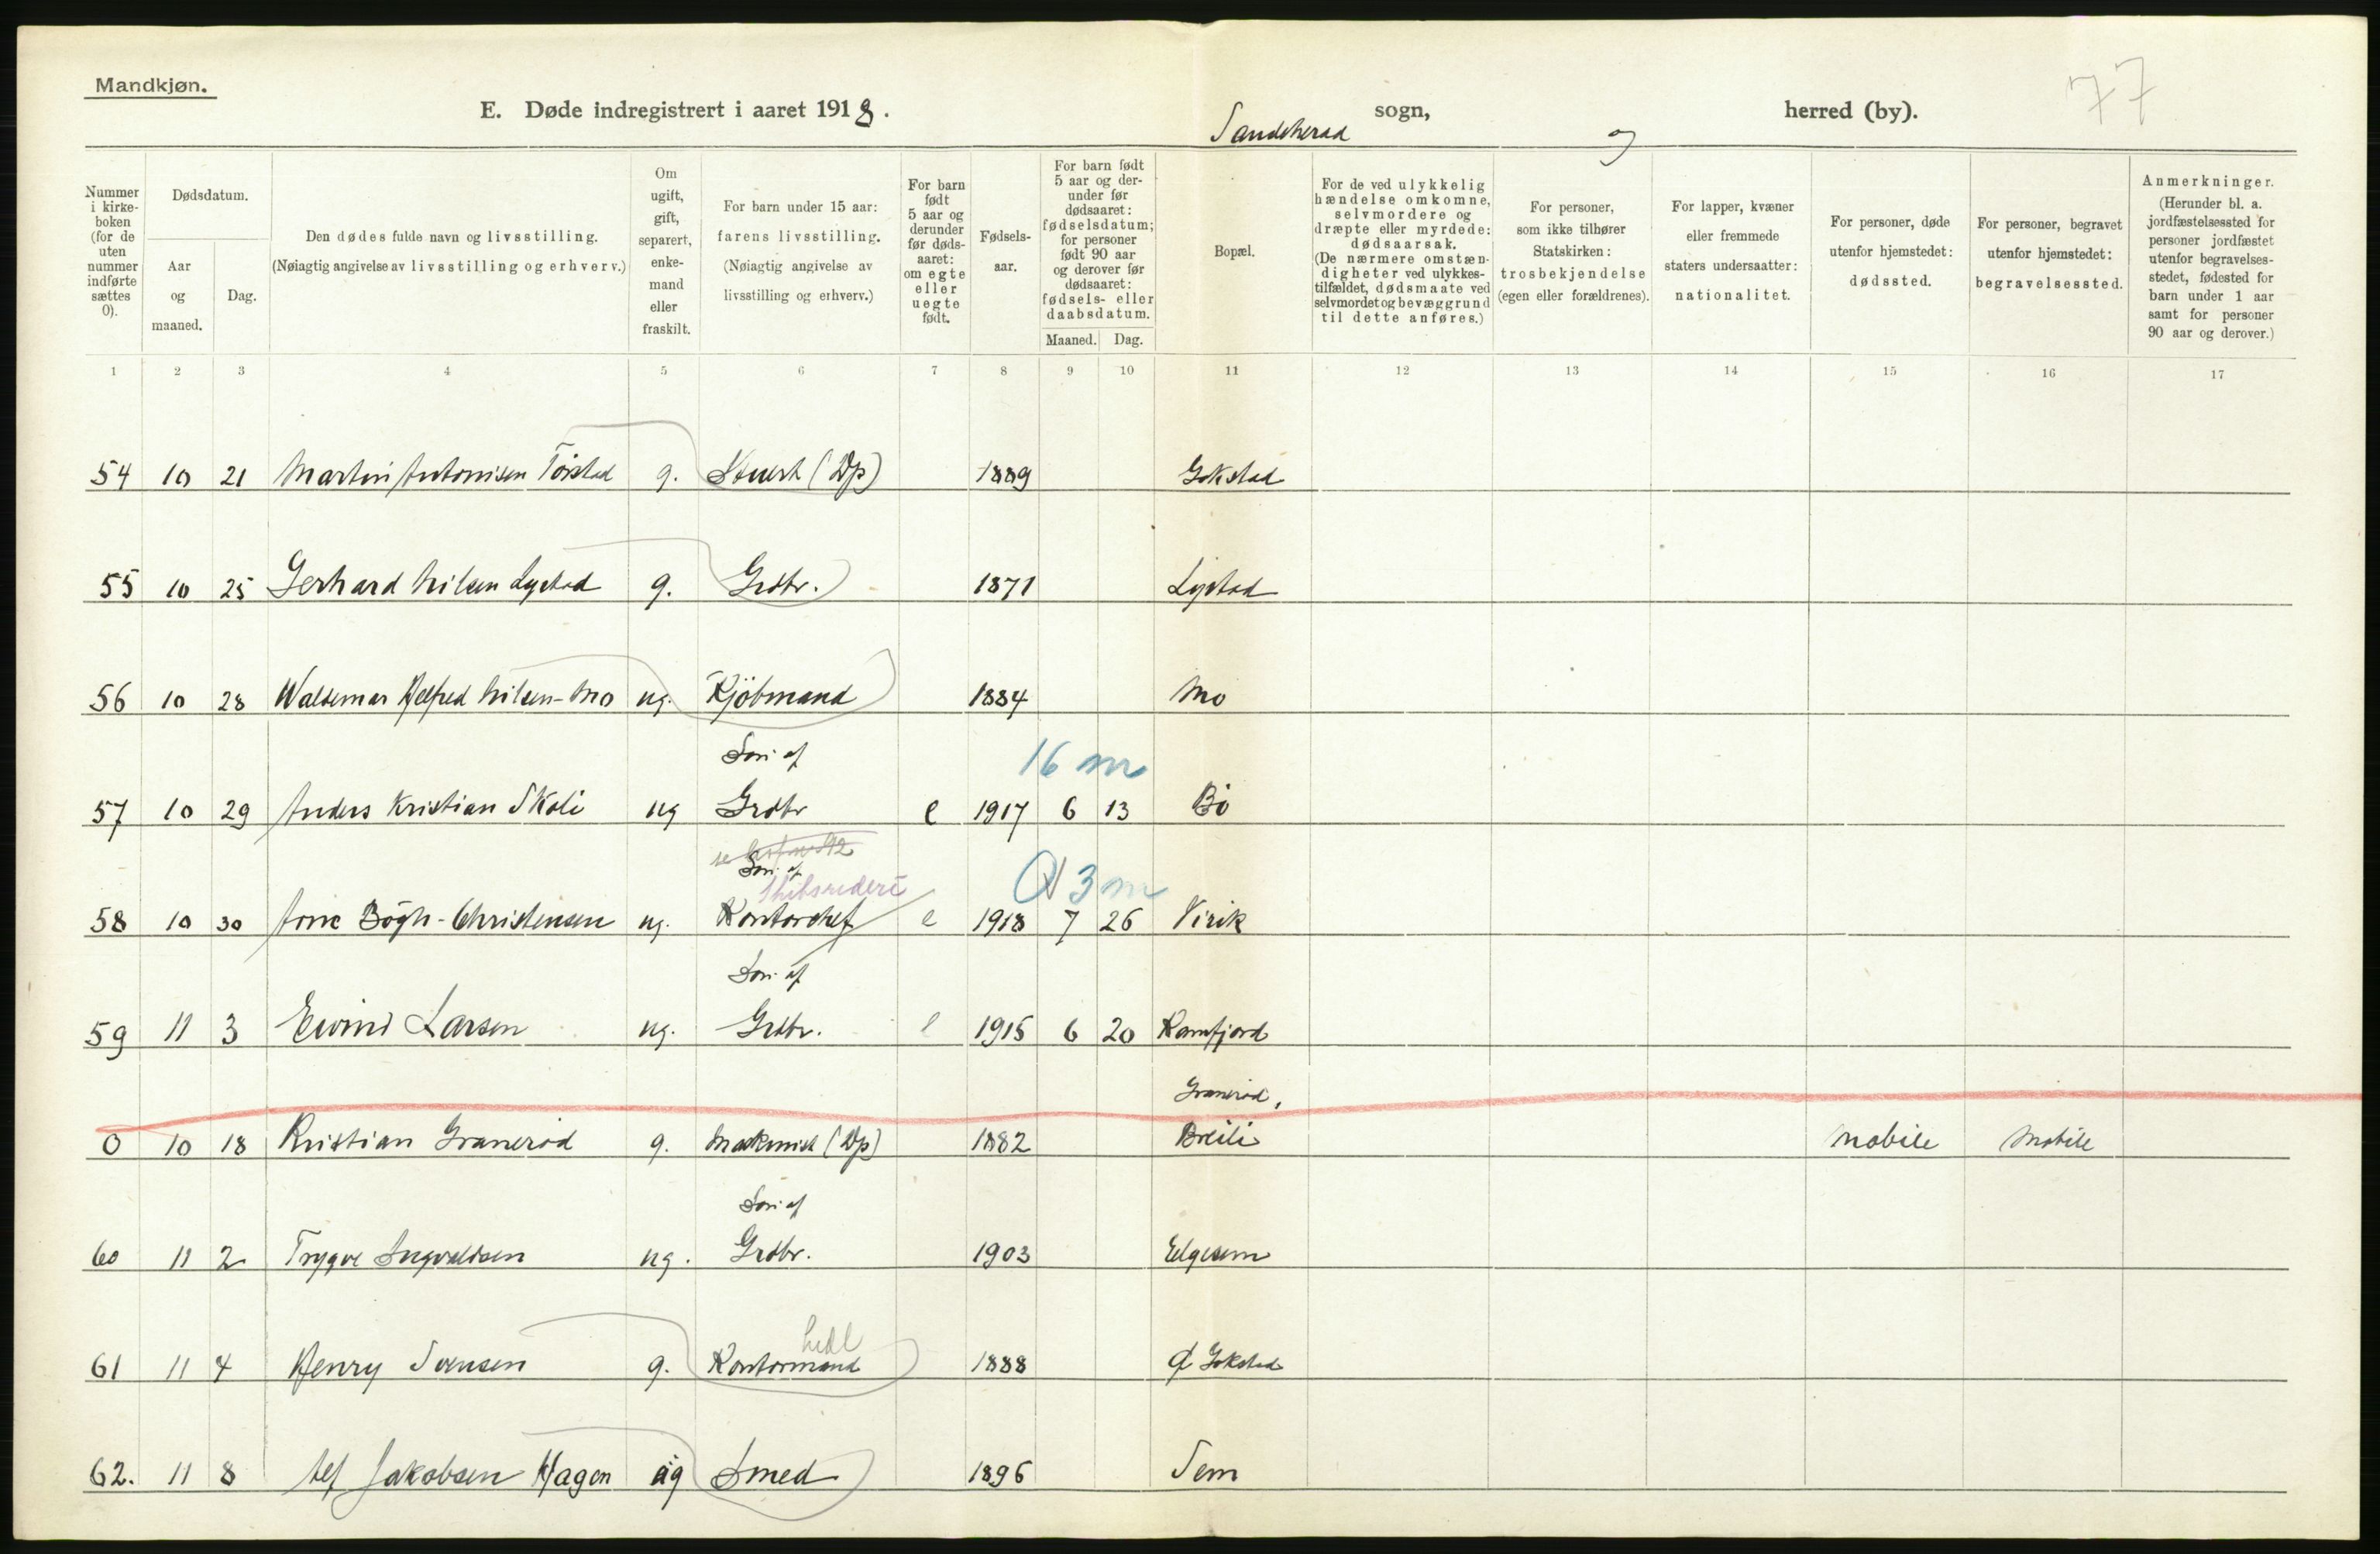 Mandkjøn.
77
E. Døde indregistrert i aaret 1918.
Sandeherad sogn, og herred (by).
Nummer i kirke- boken (for de uten nummer indførte sættes 0).
Dødsdatum.
Aar og maaned.
Dag.
Den dødes fulde navn og livsstilling.
(Nøiagtig angivelse av livsstilling og erhverv.)
Om ugift, gift, separert, enke- mand eller fraskilt.
For barn under 15 aar: farens livsstilling.
(Nøiagtig angivelse av livsstilling og erhverv.)
For barn født 5 aar og derunder før døds- aaret: om egte eller uegte født.
Fødsels- aar.
For barn født 5 aar og der- under før dødsaaret: fødselsdatum; for personer født 90 aar og derover før dødsaaret: fødsels- eller daabsdatum.
Maaned. Dag.
Bopæl.
For de ved ulykkelig hændelse omkomne, selvmordere og dræpte eller myrdede: dødsaarsak.
(De nærmere omstæn- digheter ved ulykkes- tilfældet, dødsmaate ved selvmordet og bevæggrund til dette anføres.)
For personer, som ikke tilhører Statskirken: trosbekjendelse (egen eller forældrenes).
For lapper, kvæner eller fremmede staters undersaatter: nationalitet.
For personer, døde utenfor hjemstedet: dødssted.
For personer, begravet utenfor hjemstedet: begravelsessted.
Anmerkninger.
(Herunder bl. a. jordfæstelsessted for personer jordfæstet utenfor begravelses- stedet, fødested for barn under 1 aar samt for personer 90 aar og derover.)
1 2 3 4 5 6 7 8 9 10 11 12 13 14 15 16 17
54 10 21 Martin Antonisen g. (Dp) 1889 Gokstad
55 10 25 Gerhard Nilsen Lystad g. Grdbr. 1871 Lystad
56 10 28 Waldemar Alfred Nilsen-Mo ug. Kjöbmand 1884 Mo
Sön af 16 m
57 10 29 Anders Kristian Skoli ug Grdbr e 1917 6 13 Bö
Sön af 3 m
Skibsrederi
58 10 30 Arne Bögh-Christensen ug. Kontorchef e 1918 7 26 Virik
Sön af
59 11 3 Eivind Larsen ug. Grdbr. e 1915 6 20 Ramfjord
Graneröd,
0 10 18 Kristian Graneröd g. Maskinist (Dp) 1882 Breili Mobile Mobile
Sön af
60 11 2 Trygve Ingvaldsen ug. Grdbr. 1903 Elgesem
61 11 4 Henry Svensen g. Kontormand 1888 Gokstad
62. 11 8 Alf Jakobsen Hagen ug Smed 1896 Sem